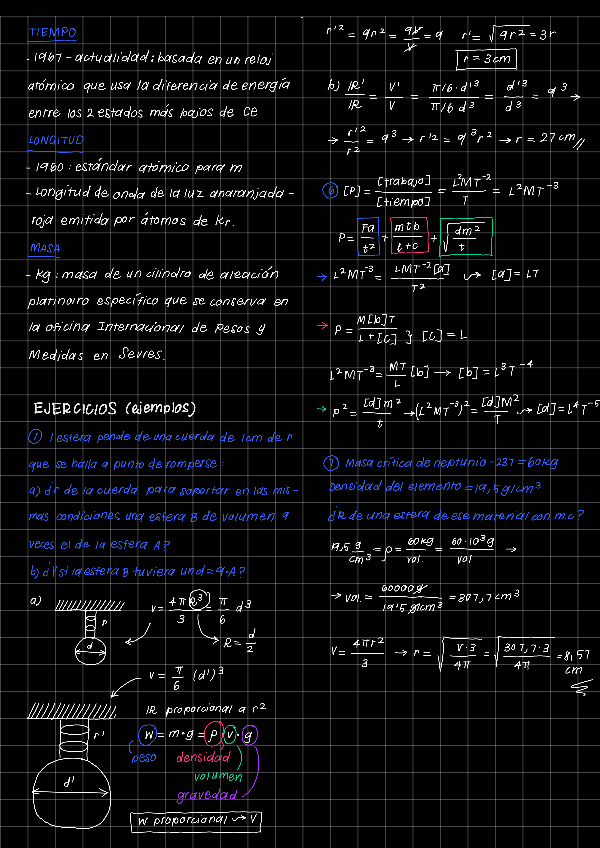 TIEMPO
- 1967 - actualidad: basada en un reloj
atómico que usa la diferencia de energía
entre los 2 estados más bajos de Ce
LONGITUD
- 1960: estándar atómico para m
- Longitud de onda de la luz anaranjada -
roja emitida por átomos de Kr.
MASA
- kg: masa de un cilindro de aleación
platinoiro específico que se conserva en
la oficina Internacional de Pesos y
Medidas en Sevres.
EJERCICIOS (ejemplos)
① 1 esfera pende de una cuerda de 1cm de r
que se halla a punto de romperse:
a) ¿r de la cuerda para soportar en las mis-
mas condiciones una esfera B de volumen 9
veces el de la esfera A?
b) ¿Y si la esfera B tuviera un d = 9·A?
a)
r
d
V = 4πR³/3 = π/6 d³
R = d/2
V = π/6 (d')³
r'
d'
IR proporcional a r²
W = m·g = ρ·V·g
peso
densidad
volumen
gravedad
W proporcional → V
r'² = 9r² = 9V/V = 9 r' = √9r² = 3r
r = 3cm
b) IR'/IR = V'/V = π/6·d'³/π/6 d³ = d'³/d³ = 9³ →
→ r'²/r² = 9³ → r'² = 9³r² → r = 27cm//
⑥ [P] = [trabajo]/[tiempo] = L²MT⁻²/T = L²MT⁻³
P = Fa/t² + mtb/L+c + √dm²/t
→ L²MT⁻³ = LMT⁻²[a]/T² → [a] = LT
→ P = M[b]T/L+[c] } [c] = L
L²MT⁻³ = MT/L [b] → [b] = L³T⁻⁴
→ P² = [d]m²/t → (L²MT⁻³)² = [d]M²/T → [d] = L⁴T⁻⁵
⑦ Masa crítica de neptunio - 237 = 60kg
Densidad del elemento = 19,5 g/cm³
¿R de una esfera de ese material con m.c?
19,5 g/cm³ = ρ = 60kg/vol. = 60·10³g/vol →
→ vol. = 60000g/19'5g/cm³ = 307,7 cm³
V = 4πr²/3 → r = √V·3/4π = √307,7·3/4π = 8,57
cm